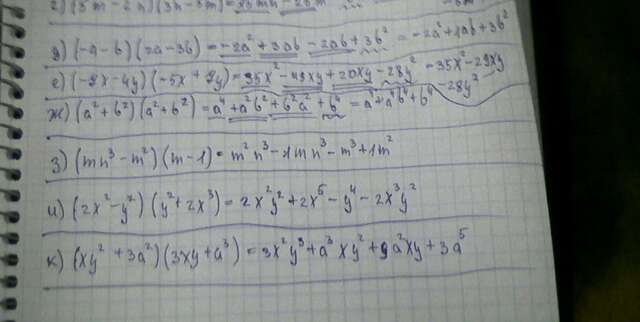 д) (-a-b)(2a-3b) = -2a² + 3ab - 2ab + 3b² = -2a² + 1ab + 3b²
е) (-7x-4y)(-5x+7y) = 35x² - 49xy + 20xy - 28y² = 35x² - 29xy - 28y²
ж) (a²+b²)(a²+b²) = a⁴ + a²b² + b²a² + b⁴ = a⁴ + a⁴b⁴ + b⁴
з) (mn³-m²)(m-1) = m²n³ - 1mn³ - m³ + 1m²
и) (2x²-y²)(y²+2x³) = 2x²y² + 2x⁵ - y⁴ - 2x³y²
к) (xy²+3a²)(3xy+a³) = 3x²y³ + a³xy² + 9a²xy + 3a⁵